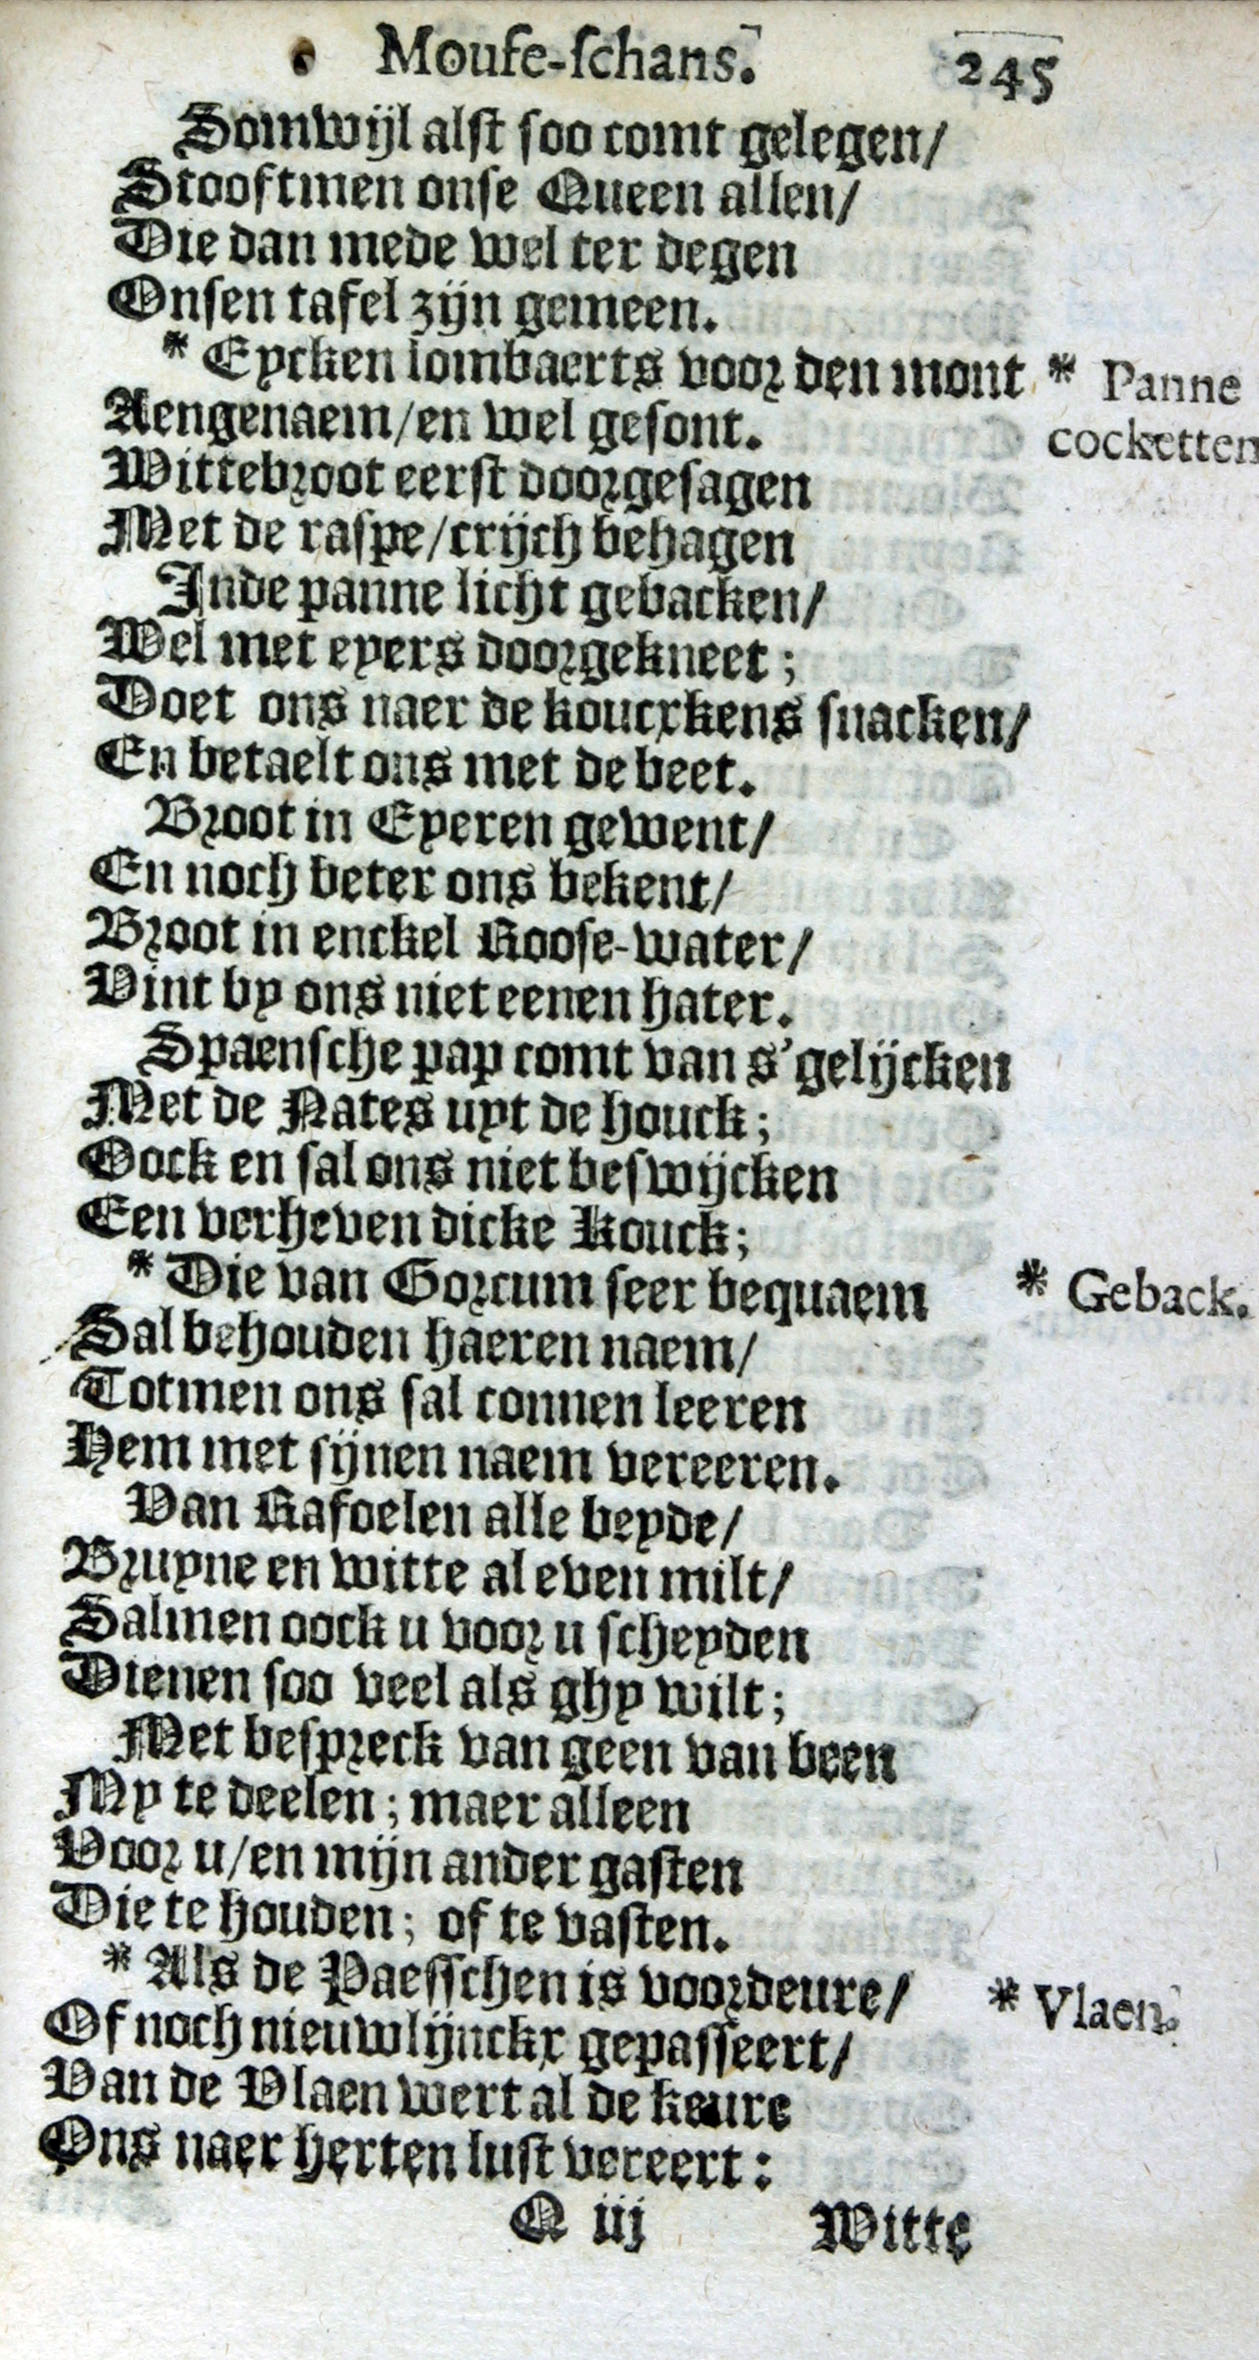 Mouſe-ſchans. 245
Somwijl alſt ſoo comt gelegen/
Stooftmen onſe Queen allen/
Die dan mede wel ter degen
Onſen tafel zijn gemeen.
* Eycken lombaerts voor den mont * Panne
Aengenaem/en wel geſont. cocketten
Wittebroot eerſt doorgeſagen
Met de raſpe/crijch behagen
Inde panne licht gebacken/
Wel met eyers doorgekneet;
Doet ons naer de koucxkens ſnacken/
En betaelt ons met de beet.
Broot in Eyeren gewent/
En noch beter ons bekent/
Broot in enckel Rooſe-water/
Vint by ons niet eenen hater.
Spaenſche pap comt van s'gelijcken
Met de Nates uyt de houck;
Oock en ſal ons niet beſwijcken
Een verheven dicke Kouck;
* Die van Gorcum ſeer bequaem * Geback.
Sal behouden haeren naem/
Totmen ons ſal connen leeren
Hem met ſijnen naem vereeren.
Van Rafoelen alle beyde/
Bruyne en witte al even milt/
Salmen oock u voor u ſcheyden
Dienen ſoo veel als ghy wilt;
Met beſpreck van geen van been
My te deelen; maer alleen
Voor u/en mijn ander gaſten
Die te houden; of te vaſten.
* Als de Paeſſchen is voordeure/ * Vlaen.
Of noch nieuwlijnckx gepaſſeert/
Van de Vlaen wert al de keure
Ons naer herten luſt vereert:
Q iij Witte